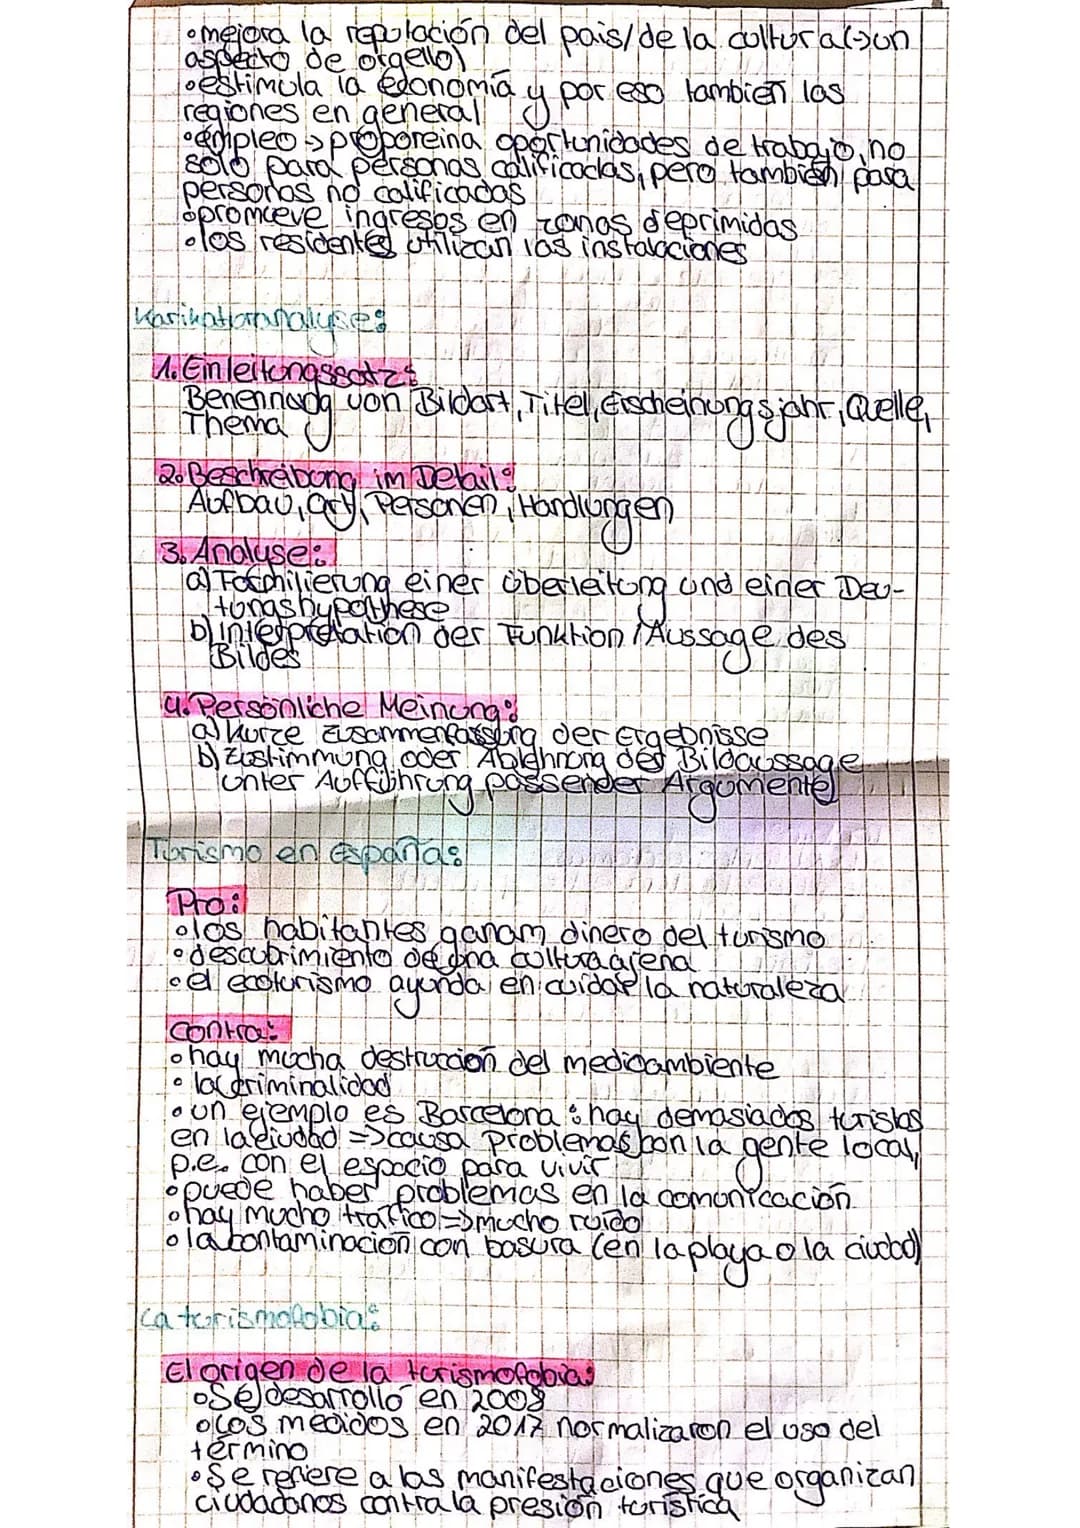 • mejora la reputación del pais/de la cultura(→un
aspecto de orgello)
• estimula la economía y por eso tambien las
regiones en general
• empleo → proporeina oportunidades de trabajo, no
solo para personas calificadas, pero tambien para
personas no calificadas
• promueve ingresos en zonas deprimidas
• los residentes utilizan las instalaciones
Karikaturanalyse:
1. Einleitungssatz:
Benennung von Bildart, Titel, Erscheinungsjahr, Quelle,
Thema
2. Beschreibung im Detail:
Aufbau, Ort, Personen, Handlungen
3. Analyse:
a) Formulierung einer Überleitung und einer Deu-
tungshypothese
b) Interpretation der Funktion / Aussage des
Bildes
4. Persönliche Meinung:
a) kurze Zusammenfassung der Ergebnisse
b) Zustimmung oder Ablehnung der Bildaussage
unter Aufführung passender Argumente
Turismo en España:
Pro:
• los habitantes ganam dinero del turismo
• descubrimiento de una cultura ajena
• el ecoturismo ayunda en cuidar la naturaleza
Contra:
• hay mucha destruccion del medioambiente
• la criminalidad
• un ejemplo es Barcelona: hay demasiados turistas
en la ciudad => causa problemas con la gente local,
p.e. con el espacio para vivir
• puede haber problemas en la comunicación
• hay mucho tráfico => mucho ruido
• la contaminación con basura (en la playa o la ciudad)
La turismofobia:
El origen de la turismofobia:
• Se desarrolló en 2008
• Los medidos en 2017 normalizaron el uso del
término
• Se refiere a las manifestaciones que organizan
ciudadanos contra la presión turística